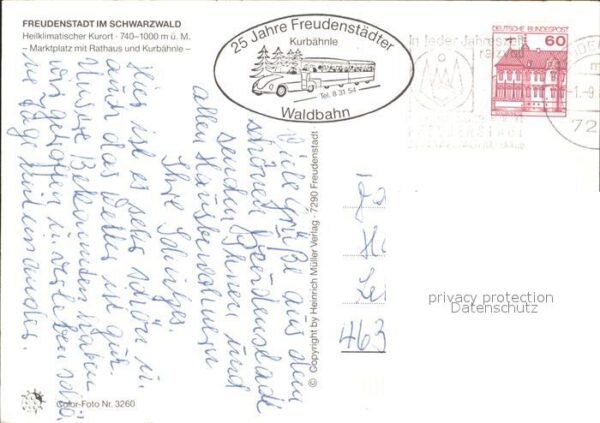 FREUDENSTADT IM SCHWARZWALD
Heilklimatischer Kurort · 740–1000 m ü. M.
– Marktplatz mit Rathaus und Kurbähnle –
25 Jahre Freudenstädter
Kurbähnle
Tel. 8 31 54
Waldbahn
in jeder Jahreszeit
FREUDENSTADT
DEUTSCHE BUNDESPOST
60
-1.-9.
72
Viele Grüße aus dem
schönen Freudenstadt
senden Ihnen und
allen Hausbewohnern
Ihre
Hier ist es sehr schön u.
auch das Wetter ist gut.
Unsere Bekannten haben
wir getroffen u. verleben schö
ne Tage miteinander.
© Copyright by Heinrich Müller Verlag · 7290 Freudenstadt
463
privacy protection
Datenschutz
Color-Foto Nr. 3260